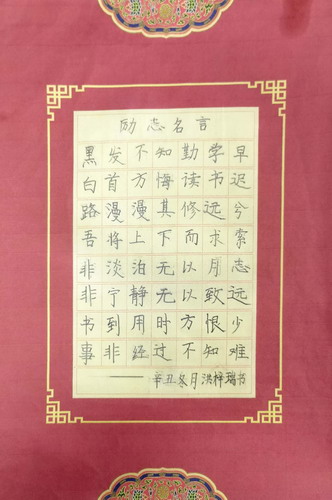 励志名言
黑发不知勤学早
白首方悔读书迟
路漫漫其修远兮
吾将上下而求索
非淡泊无以明志
非宁静无以致远
书到用时方恨少
事非经过不知难
——辛丑冬月洪梓瑞书